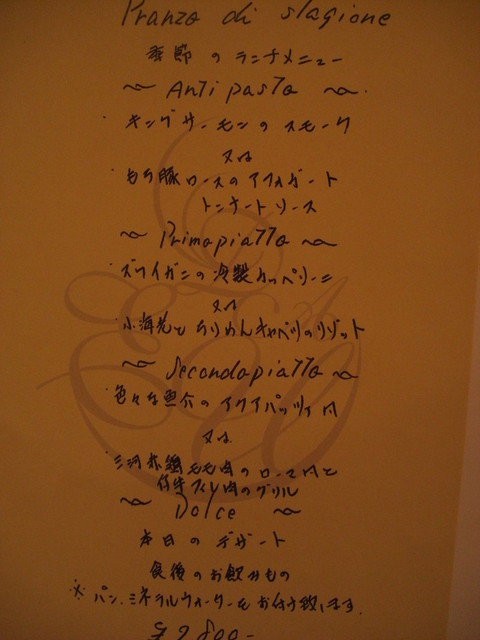 Pranzo di stagione
季節のランチメニュー
~ Antipasto ~
・キングサーモンのスモーク
又は
・もち豚ロースのアフミガート
トンナートソース
~ Primopiatto ~
・ズワイガニの冷製カッペリーニ
又は
・小海老とちりめんキャベツのリゾット
~ Secondopiatto ~
・色々な魚介のアクアパッツァ
又は
・三河赤鶏モモ肉のローマ風と
仔牛フィレ肉のグリル
~ Dolce ~
本日のデザート
食後のお飲みもの
※パン、ミネラルウォーターをお付け致します。